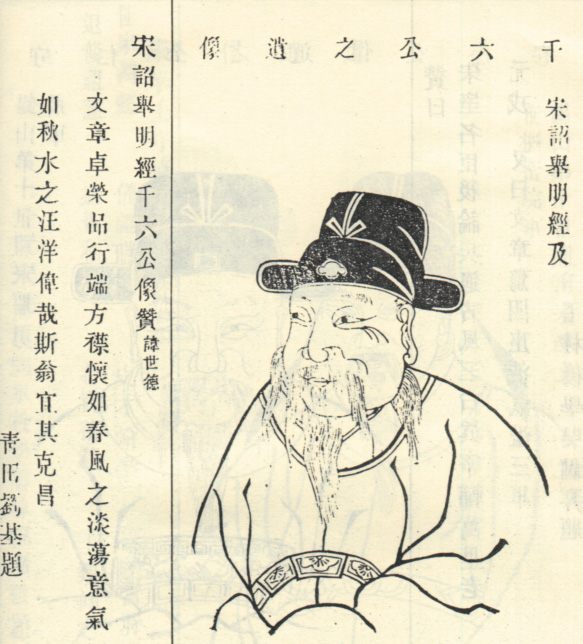 千六公之遺像
宋詔舉明經及
宋詔舉明經千六公像贊諱世德
文章卓榮品行端方襟懷如春風之淡蕩意氣
如秋水之汪洋偉哉斯翁宜其克昌
青田劉基題